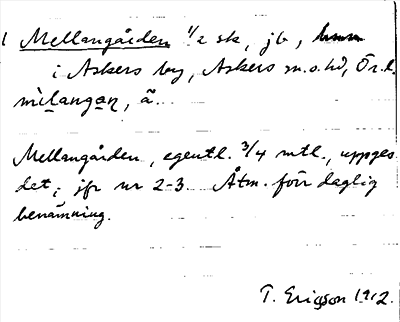 1 Mellangården 1/2 sk, jb,
i Askers by, Askers sn. o. hd, Ör. l.
mìlangaɳ, ä.
Mellangården, egentl. 3/4 mtl., uppges
det; jfr nr 2-3. Åtm. förr daglig
benämning.
T. Ericsson 1912.